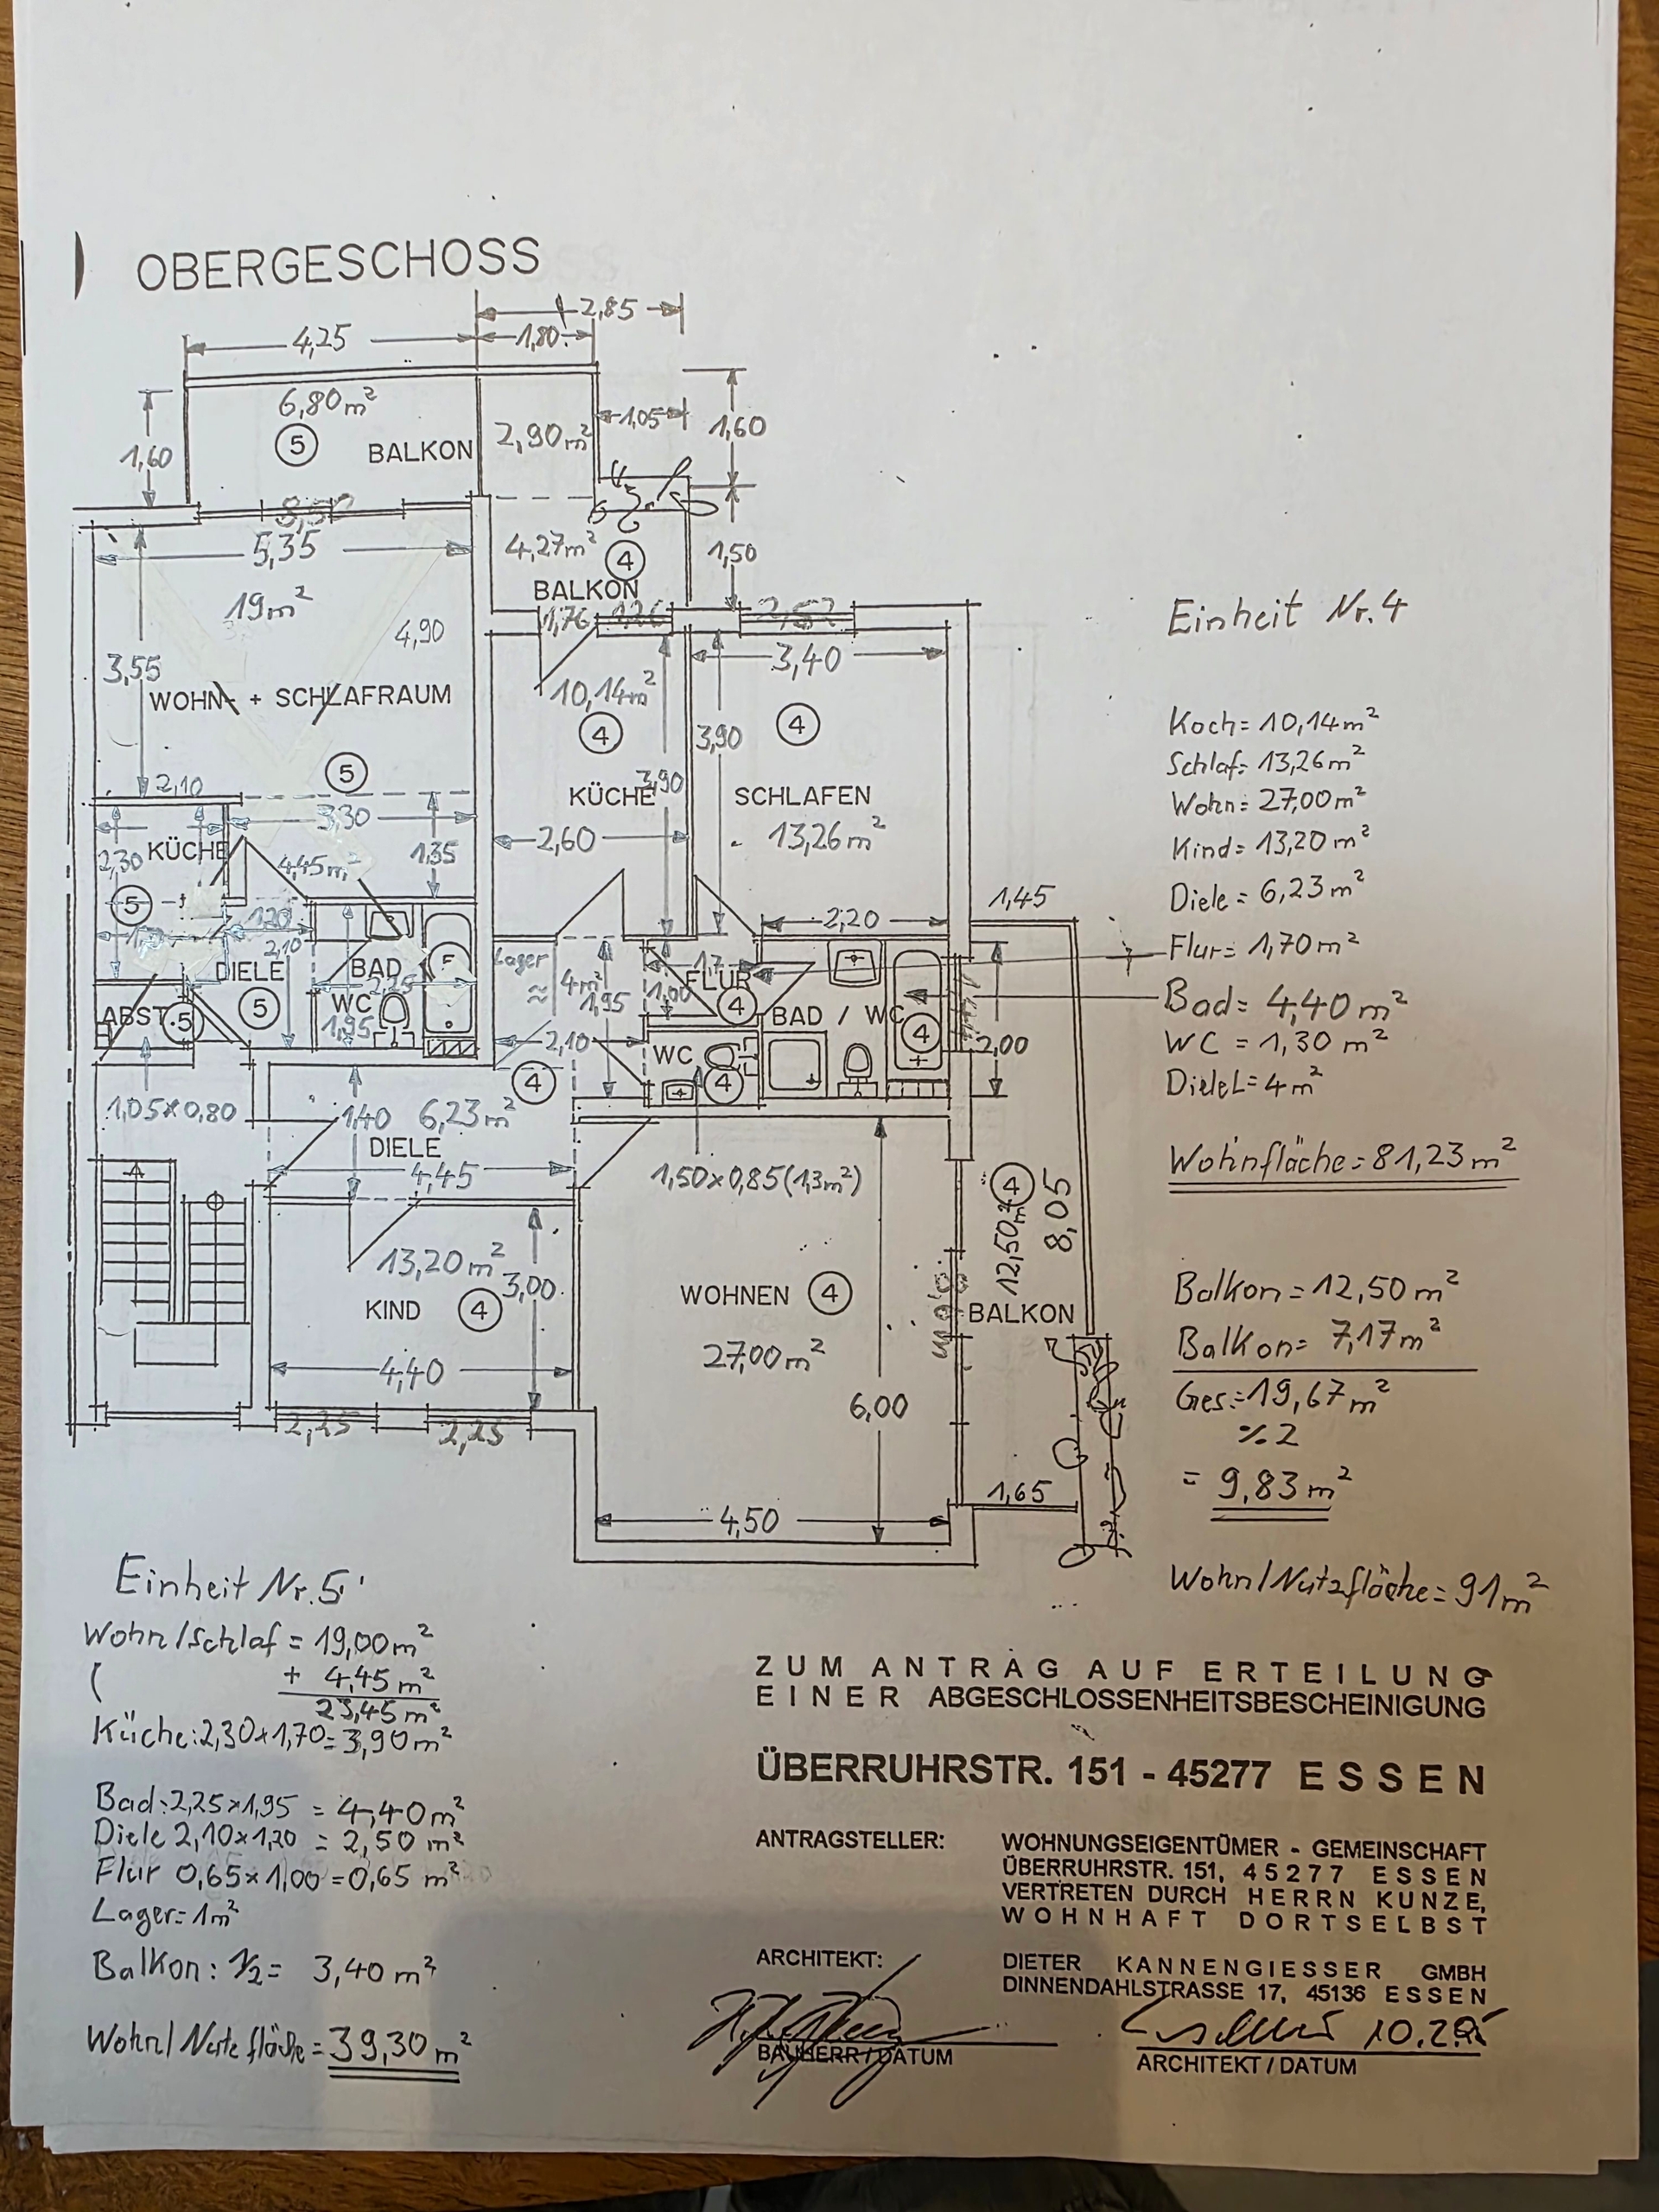 OBERGESCHOSS
2,85
4,25
1,80
6,80 m²
5
BALKON
2,90 m²
1,05
1,60
1,60
5,35
19 m²
4,90
3,55
WOHN- + SCHLAFRAUM
5
4,27 m²
4
BALKON
1,50
1,76
1,26
2,52
3,40
10,14 m²
4
3,90
4
3,90
KÜCHE
SCHLAFEN
13,26 m²
2,60
2,10
3,30
KÜCHE
2,30
4,45 m²
1,35
5
1,20
2,10
DIELE
5
BAD
2,25
WC
1,95
ABST.
5
1,05 x 0,80
Lager
≈ 4 m²
1,95
2,10
4
1,7
FLUR
1,00
4
2,20
BAD / WC
4
WC
4
1,45
2,00
1,40
6,23 m²
DIELE
4,45
1,50 x 0,85 (1,3 m²)
13,20 m²
3,00
KIND
4
4,40
2,25
2,25
WOHNEN
4
27,00 m²
6,00
4,50
4
12,50 m²
8,05
BALKON
1,65
Einheit Nr. 4
Koch = 10,14 m²
Schlaf = 13,26 m²
Wohn = 27,00 m²
Kind = 13,20 m²
Diele = 6,23 m²
Flur = 1,70 m²
Bad = 4,40 m²
WC = 1,30 m²
DieleL = 4 m²
Wohnfläche = 81,23 m²
Balkon = 12,50 m²
Balkon = 7,17 m²
Ges. = 19,67 m²
% 2
= 9,83 m²
Wohn/Nutzfläche = 91 m²
Einheit Nr. 5
Wohn/Schlaf = 19,00 m²
( + 4,45 m²
23,45 m²
Küche: 2,30 x 1,70 = 3,90 m²
Bad: 2,25 x 1,95 = 4,40 m²
Diele 2,10 x 1,20 = 2,50 m²
Flur 0,65 x 1,00 = 0,65 m²
Lager = 1 m²
Balkon: 1/2 = 3,40 m²
Wohn/Nutzfläche = 39,30 m²
ZUM ANTRAG AUF ERTEILUNG
EINER ABGESCHLOSSENHEITSBESCHEINIGUNG
ÜBERRUHRSTR. 151 - 45277 ESSEN
ANTRAGSTELLER: WOHNUNGSEIGENTÜMER - GEMEINSCHAFT
ÜBERRUHRSTR. 151, 45277 ESSEN
VERTRETEN DURCH HERRN KUNZE,
WOHNHAFT DORTSELBST
ARCHITEKT: DIETER KANNENGIESSER GMBH
DINNENDAHLSTRASSE 17, 45136 ESSEN
BAUHERR / DATUM
ARCHITEKT / DATUM